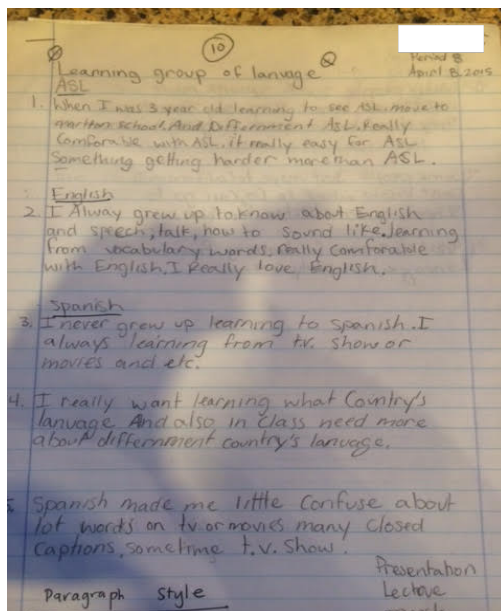 10
Period 8
April 8, 2015
Learning group of lanvage
ASL
1. When I was 3 year old learning to see ASL. move to
school. And Differnment ASL. Really
Comforable with ASL. it really easy for ASL
Something getting harder more than ASL.
English
2. I Alway grew up to know about English
and speech, talk, how to sound like. learning
from vocabulary words. really Comforable
with English. I Really love English.
Spanish
3. I never grew up learning to spanish. I
always learning from tv. show or
movies and etc.
4. I really want learning what Country's
lanvage And also in class need more
about differnment country's lanvage.
5. Spanish made me little Confuse about
lot words on tv. or movies many closed
Captions, sometime t.v. show.
Presentation
Paragraph Style
Lectove